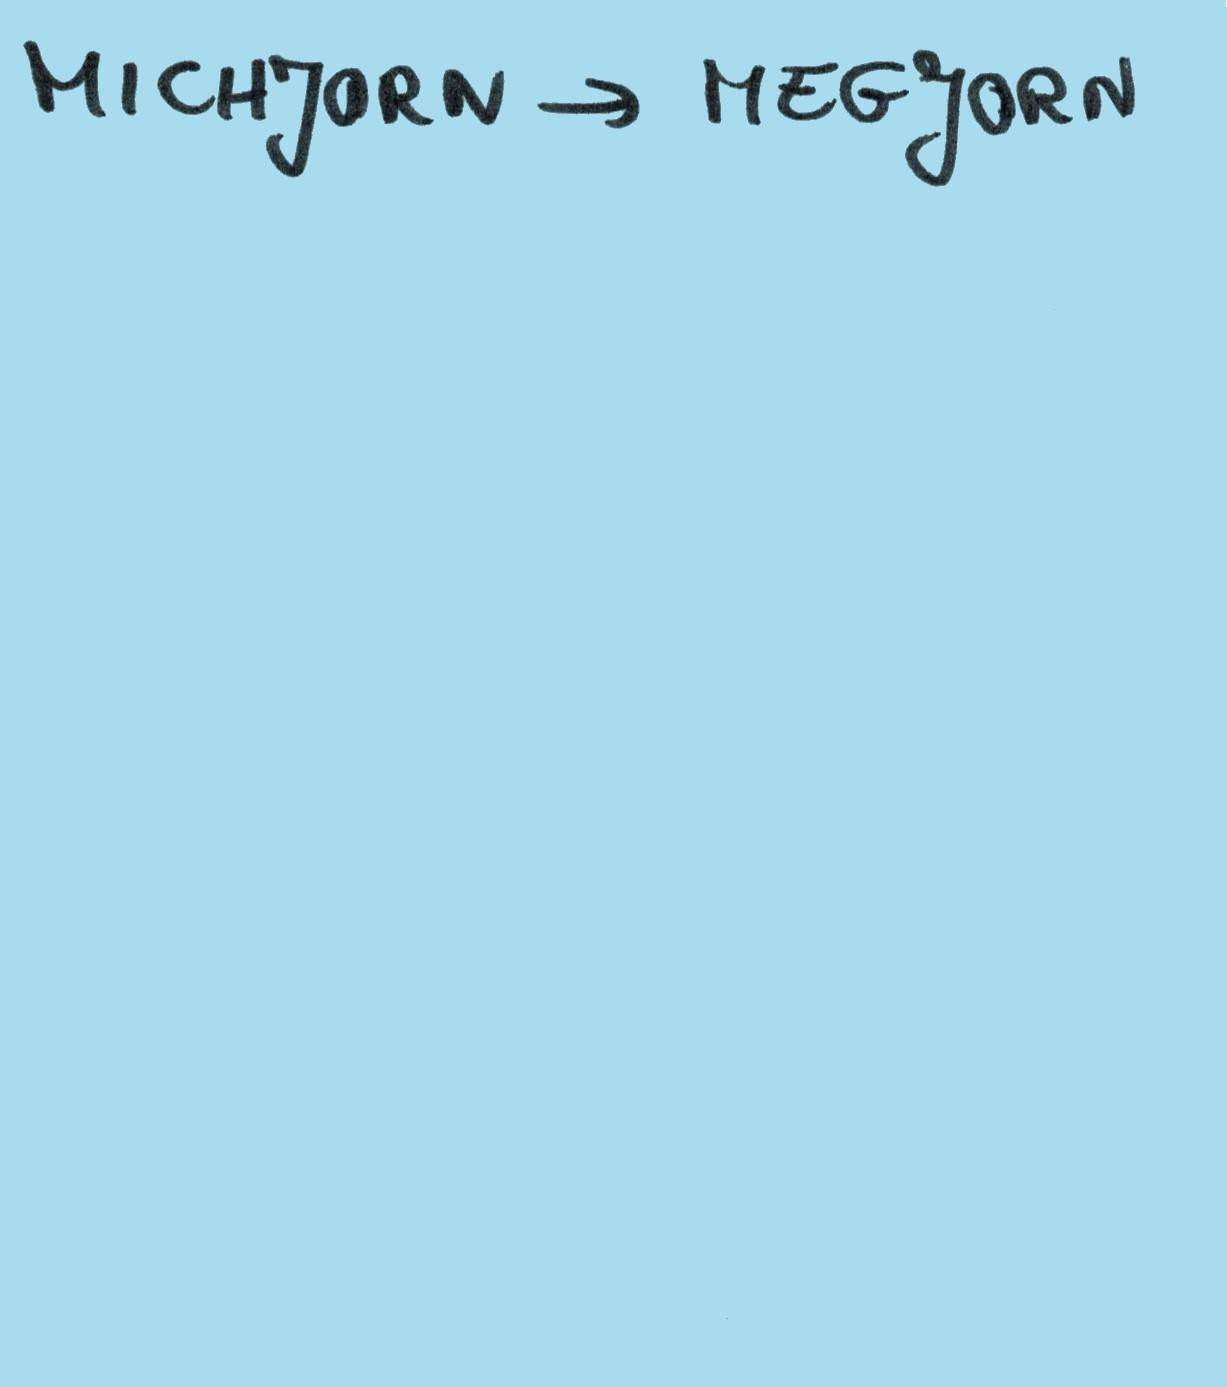 MICHJORN → MEGJORN